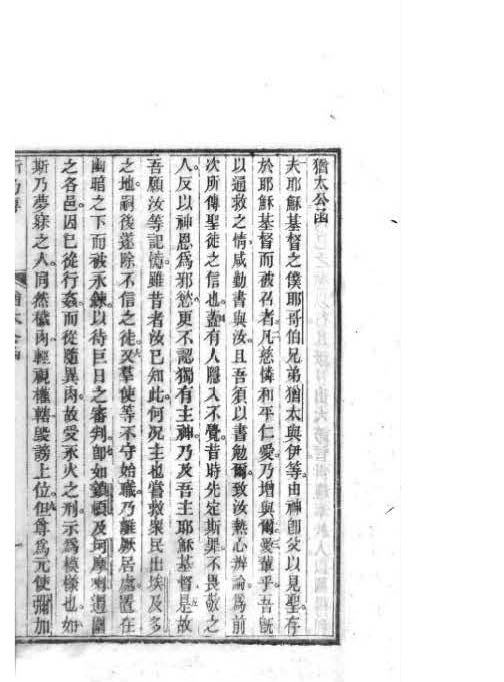 猶太公函
夫耶穌基督之僕耶哥伯兄弟猶太與伊等由神卽父以見聖存
於耶穌基督而被召者凡慈憐和平仁愛乃增與爾愛輩乎吾既
以通救之情咸勤書與汝且吾須以書勉爾致汝熱心辨論爲前
次所傳聖徒之信也蓋有人隱入不覺昔時先定斯罪不畏敬之
人反以神恩爲邪慾更不認獨有主神乃及吾主耶穌基督是故
吾願汝等記憶雖昔者汝已知此何況主也嘗救衆民出埃及多
之地嗣後遂除不信之徒又羣使等不守始職乃離厥居處置在
幽暗之下而被永鍊以待巨日之審判卽如鎖頓及坷摩喇週圍
之各邑因已從行姦而從隨異肉故受永火之刑示爲模樣也如
斯乃夢寐之人同然穢肉輕視權轄毀謗上位但尊爲元使彌加